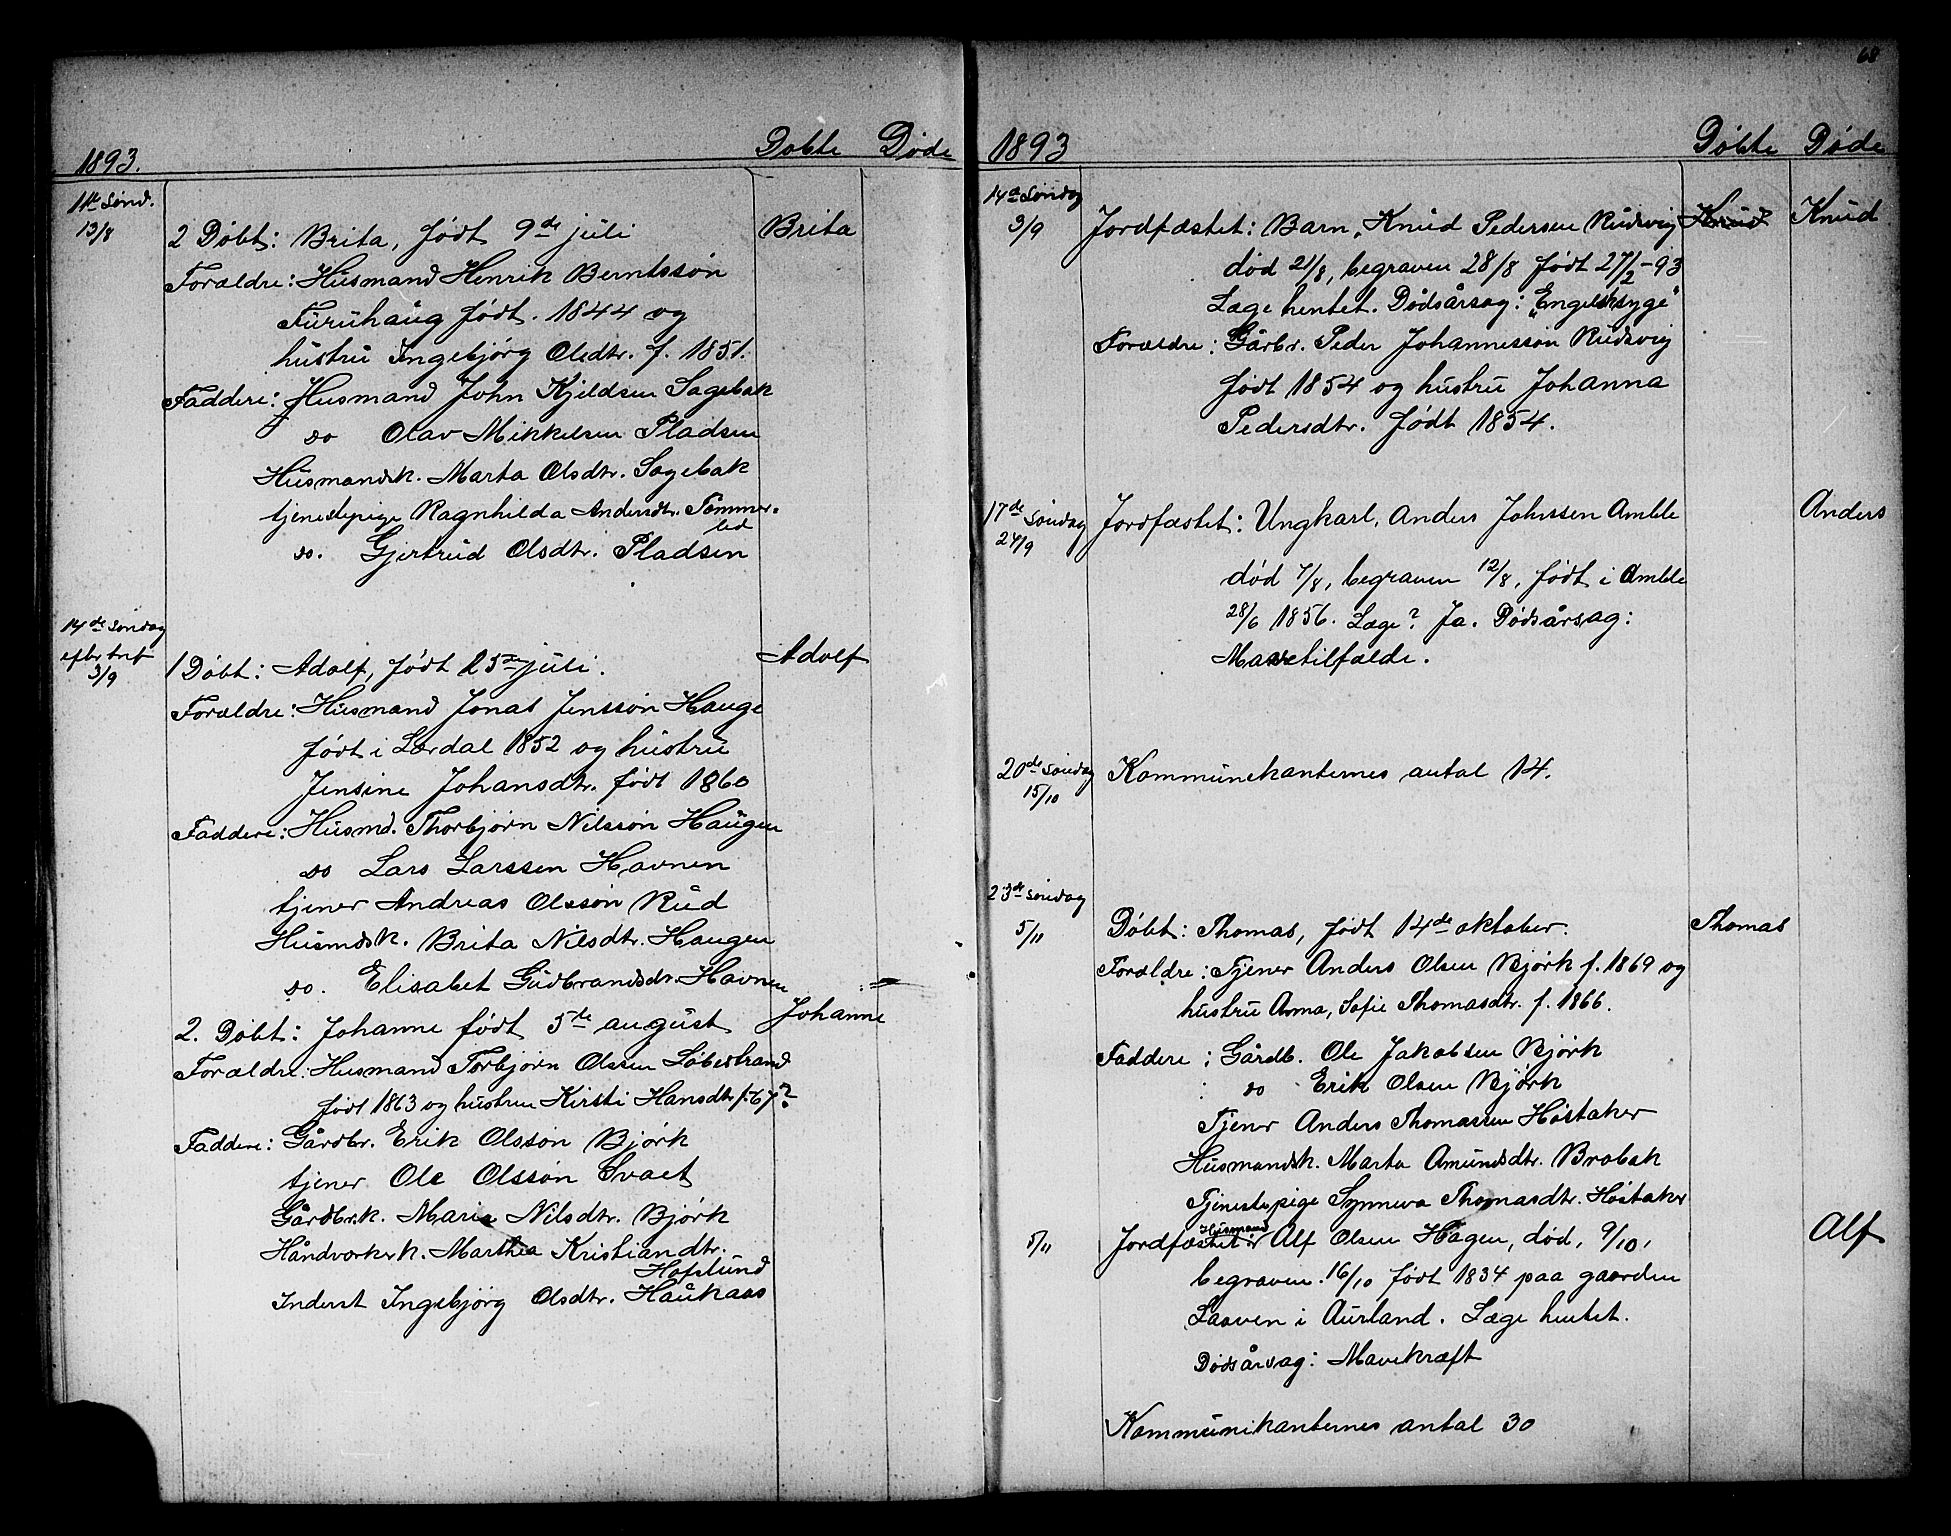 1893. Døbte Døde
11te Sønd.
13/8
2 Døbt: Brita, født 9de juli Brita
Forældre: Husmand Henrik Berntssøn
Furuhaug født. 1844 og
hustru Ingebjørg Olsdtr. f. 1851.
Faddere: Husmand John Kjeldsen Sagebak
do Olav Mikkelsen Pladsen
Husmandsk. Marta Olsdtr. Sagebak
tjenestepige Ragnhilda Andersdtr. Tømmer-
lid
do. Gjertrud Olsdtr. Pladsen
14de søndag
efter tref
3/9
1 Døbt: Adolf, født 25de juli. Adolf
Forældre: Husmand Jonas Jenssøn Hauge
født i Lærdal 1852 og hustru
Jensine Johansdtr. født 1860
Faddere: Husmd. Thorbjørn Nilssøn Haugen
do Lars Larssen Havnen
tjener Andreas Olssøn Rud
Husmdsk. Brita Nilsdtr. Haugen
do. Elisabet Gudbrandsdtr. Havnen
2. Døbt: Johanne født 5te august Johanne
Forældre: Husmand Torbjørn Olssen Løbestrand
født 1863 og hustru Kirsti Hansdtr f. 67?
Faddere: Gårdbr. Erik Olssøn Bjørk
tjener Ole Olssøn Svaet
Gårdbr.k. Marie Nilsdtr. Bjørk
Håndværkerk. Marthea Kristiandtr.
Hofslund
Inderst Ingebjørg Olsdtr. Haukaas
68
1893 Døbte Døde
14de Søndag
3/9
Jordfæstet: Barn, Knud Pedersen Rudsvig Knud Knud
død 21/8, begraven 28/8 født 27/2-93
Læge hentet. Dødsårsag: "Engelsksyge"
Forældre: Gårbr. Peder Johannessøn Rudsvig
født 1854 og hustru Johanna
Pedersdtr. født 1854.
17de Søndag
24/9
Jordfæstet: Ungkarl, Anders Johnssen Amble Anders
død 7/8, begraven 12/8, født i Amble
28/6 1856. Læge? Ja. Dødsårsag:
Mavetilfælde.
20de Søndag
15/10
Kommunekanternes antal 14.
23de søndag
5/11
Døbt: Thomas, født 14de oktober. Thomas
Forældre: Tjener Anders Olsen Bjørk f. 1869 og
hustru Anna, Sofie Thomasdtr. f. 1866.
Faddere: Gårdb. Ole Jakobsen Bjørk
do Erik Olsen Bjørk
Tjener Anders Thomassen Høstaker
Husmandsk. Marta Amundsdtr. Brobak
Tjenestepige Synneva Thomasdtr. Høstaker
5/11
Husmand
Jordfæstet: Alf Olsen Hagen, død, 9/10, Alf
begraven. 16/10 født 1834 paa gaarden
Laaven i Aurland. Læge hentet.
Dødsårsag: Mavekræft
Kommunikanternes antal 30